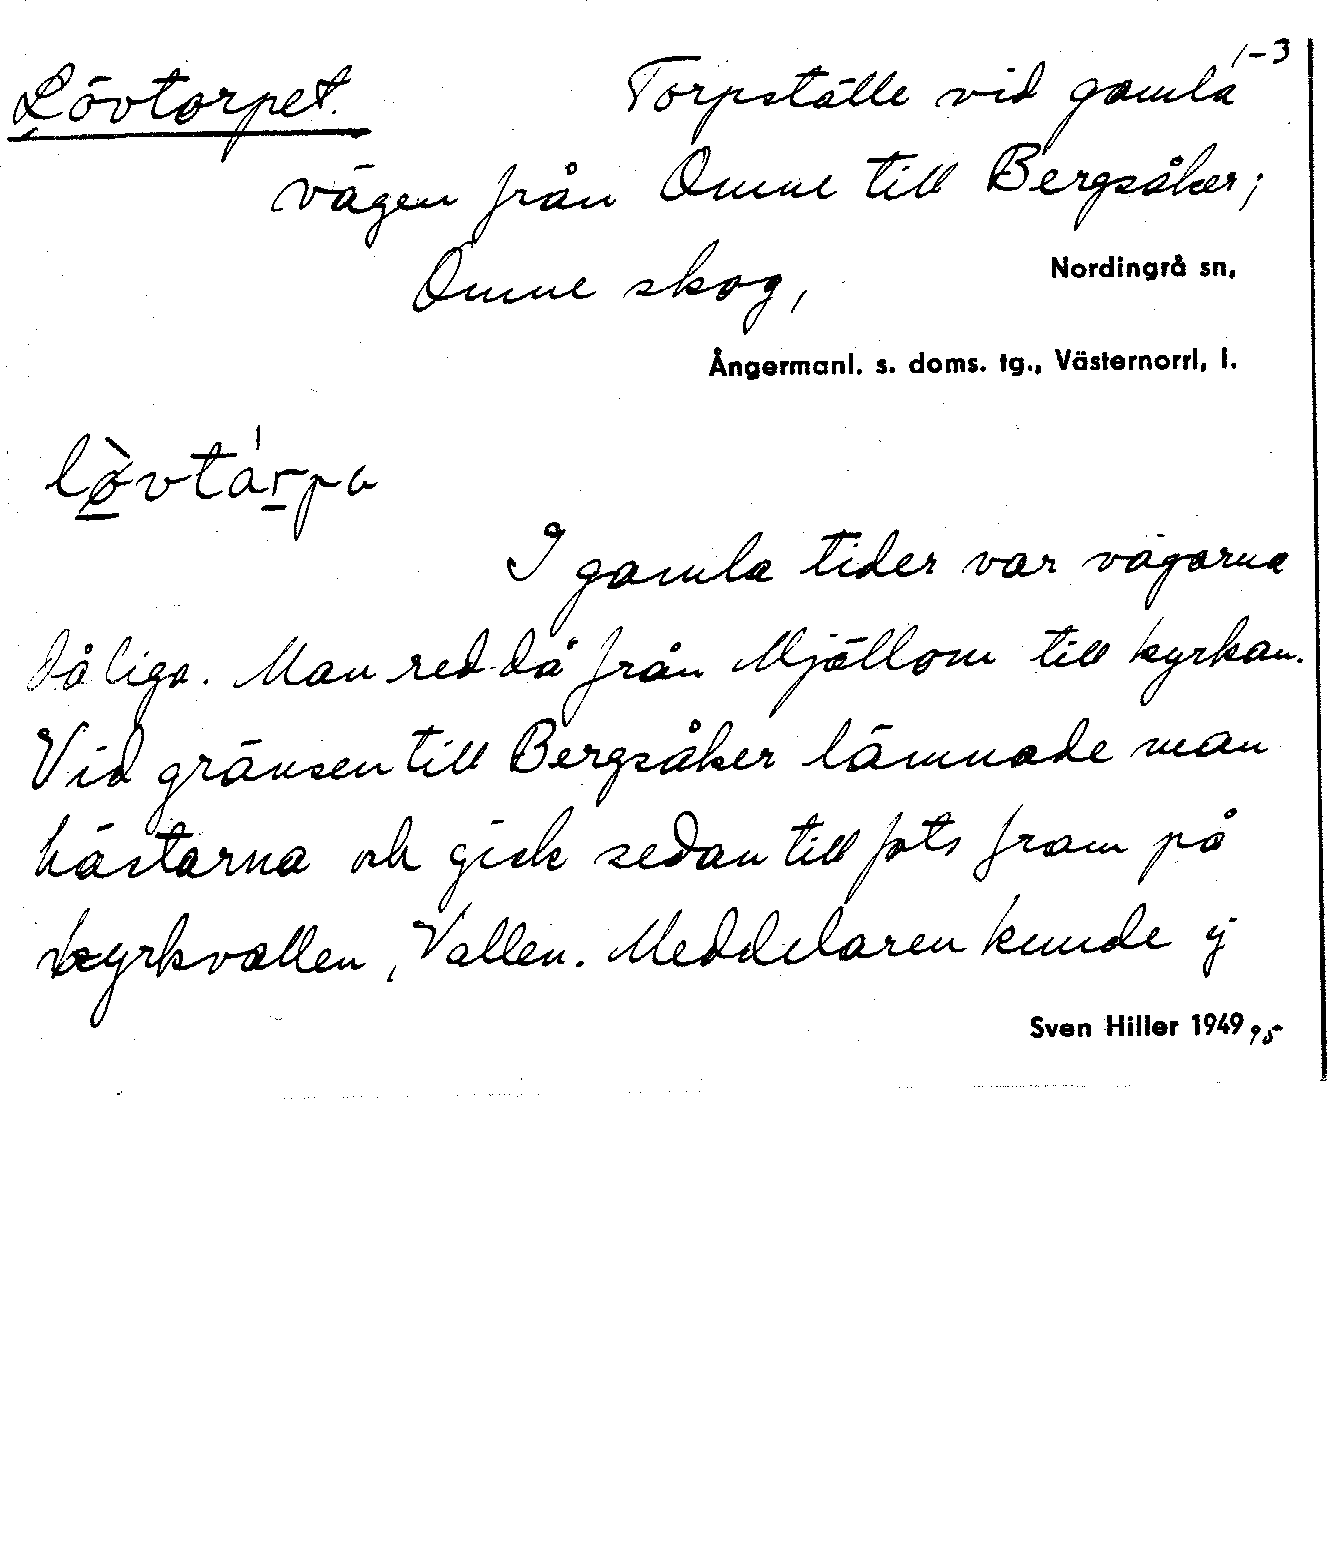 1-3
Lövtorpet. Torpställe vid gamla
vägen från Omne till Bergsåker;
Omne skog, Nordingrå sn,
Ångermanl. s. doms. tg., Västernorrl. l.
lòvtárpa
I gamla tider var vägarna
dåliga. Man red då från Mjällom till kyrkan.
Vid gränsen till Bergsåker lämnade man
hästarna och gick sedan till fots fram på
kyrkvallen, Vallen. Meddelaren kunde ej
Sven Hiller 1949